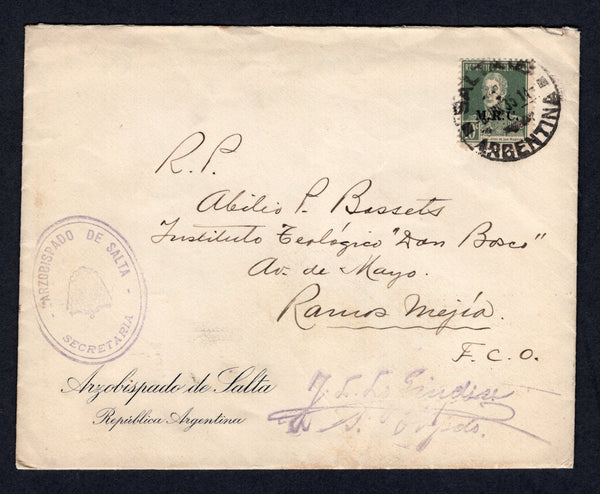 M.R.C.
SALTA
ARGENTINA
R. P.
Abilio P. Bossets
Instituto Teológico "Don Bosco"
Av. de Mayo.
Ramos Mejía.
F. C. O.
ARZOBISPADO DE SALTA
SECRETARIA
Arzobispado de Salta
República Argentina